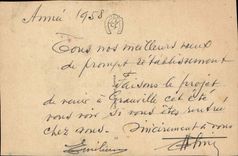 Année 1958
Tous nos meilleurs vœux
de prompt rétablissement
Faisons le projet
de venir à Granville cet été
vous voir si vous êtes rentré
chez vous. Sincèrement à vous
Emilienne